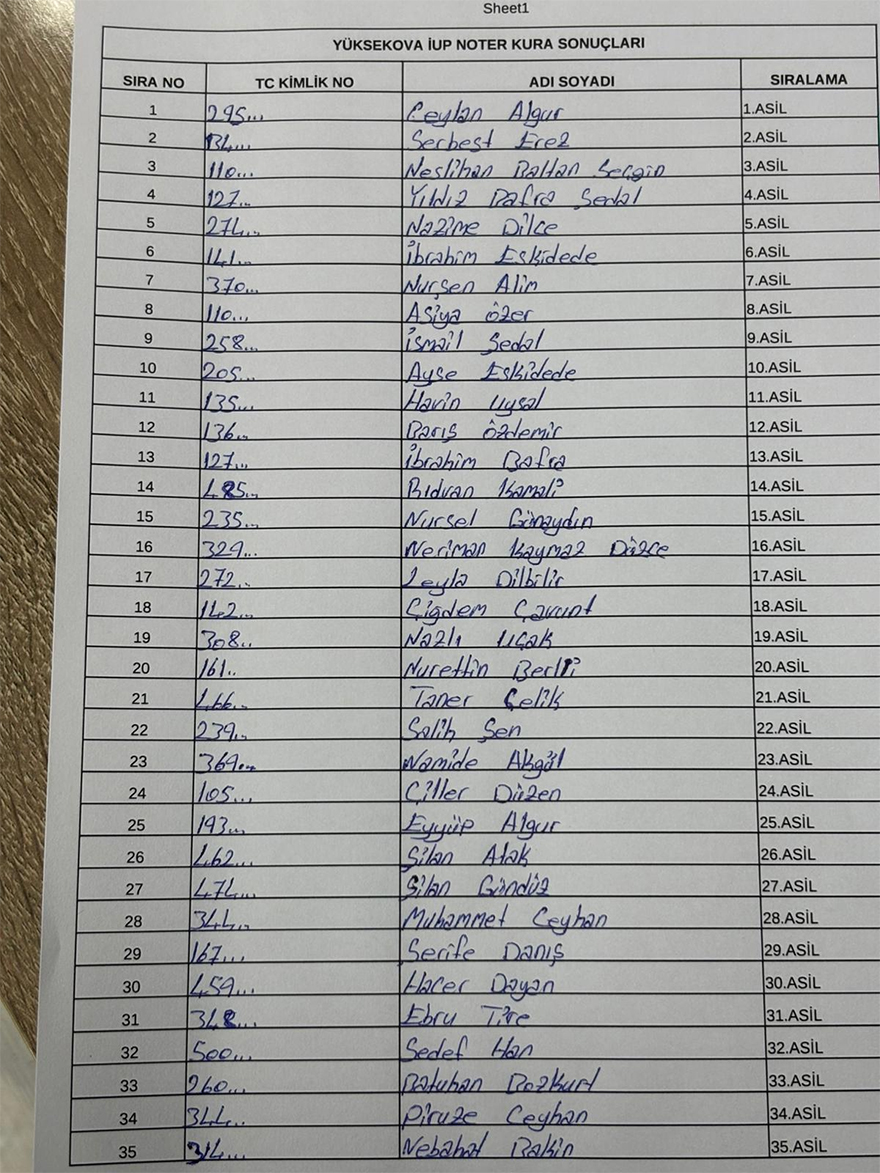 Sheet1
YÜKSEKOVA İUP NOTER KURA SONUÇLARI
SIRA NO TC KİMLİK NO ADI SOYADI SIRALAMA
1 295... Ceylan Algur 1.ASİL
2 134... Serbest Erez 2.ASİL
3 110... Neslihan Baltan Seçgin 3.ASİL
4 127.. Yıldız Bafra Şedal 4.ASİL
5 274... Nazime Dilce 5.ASİL
6 141... İbrahim Eskidede 6.ASİL
7 370... Nurşen Alim 7.ASİL
8 110... Asiya özer 8.ASİL
9 258... İsmail Şedal 9.ASİL
10 205... Ayşe Eskidede 10.ASİL
11 135... Havin Uysal 11.ASİL
12 136... Barış özdemir 12.ASİL
13 127... İbrahim Bafra 13.ASİL
14 485... Rıdvan Kamali 14.ASİL
15 235... Nursel Günaydın 15.ASİL
16 329... Neriman Kaymaz Düzce 16.ASİL
17 272.. Leyla Dilbilir 17.ASİL
18 142... Çiğdem Çavunt 18.ASİL
19 308.. Nazlı Uçak 19.ASİL
20 161.. Nurettin Berlli 20.ASİL
21 466... Taner Çelik 21.ASİL
22 239... Salih Şen 22.ASİL
23 369... Namide Akgül 23.ASİL
24 105... Çiller Düzen 24.ASİL
25 193... Eyyüp Algur 25.ASİL
26 462... Şilan Atak 26.ASİL
27 474... Şilan Gündüz 27.ASİL
28 344... Muhammet Ceyhan 28.ASİL
29 167... Şerife Danış 29.ASİL
30 459... Hacer Dayan 30.ASİL
31 348... Ebru Tire 31.ASİL
32 500... Sedef Han 32.ASİL
33 260... Batuhan Bozkurt 33.ASİL
34 344.. Piruze Ceyhan 34.ASİL
35 314... Nebahat Bakin 35.ASİL